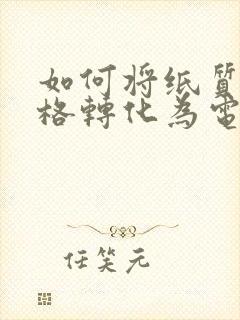 如何将纸質
格轉化為電
任笑元